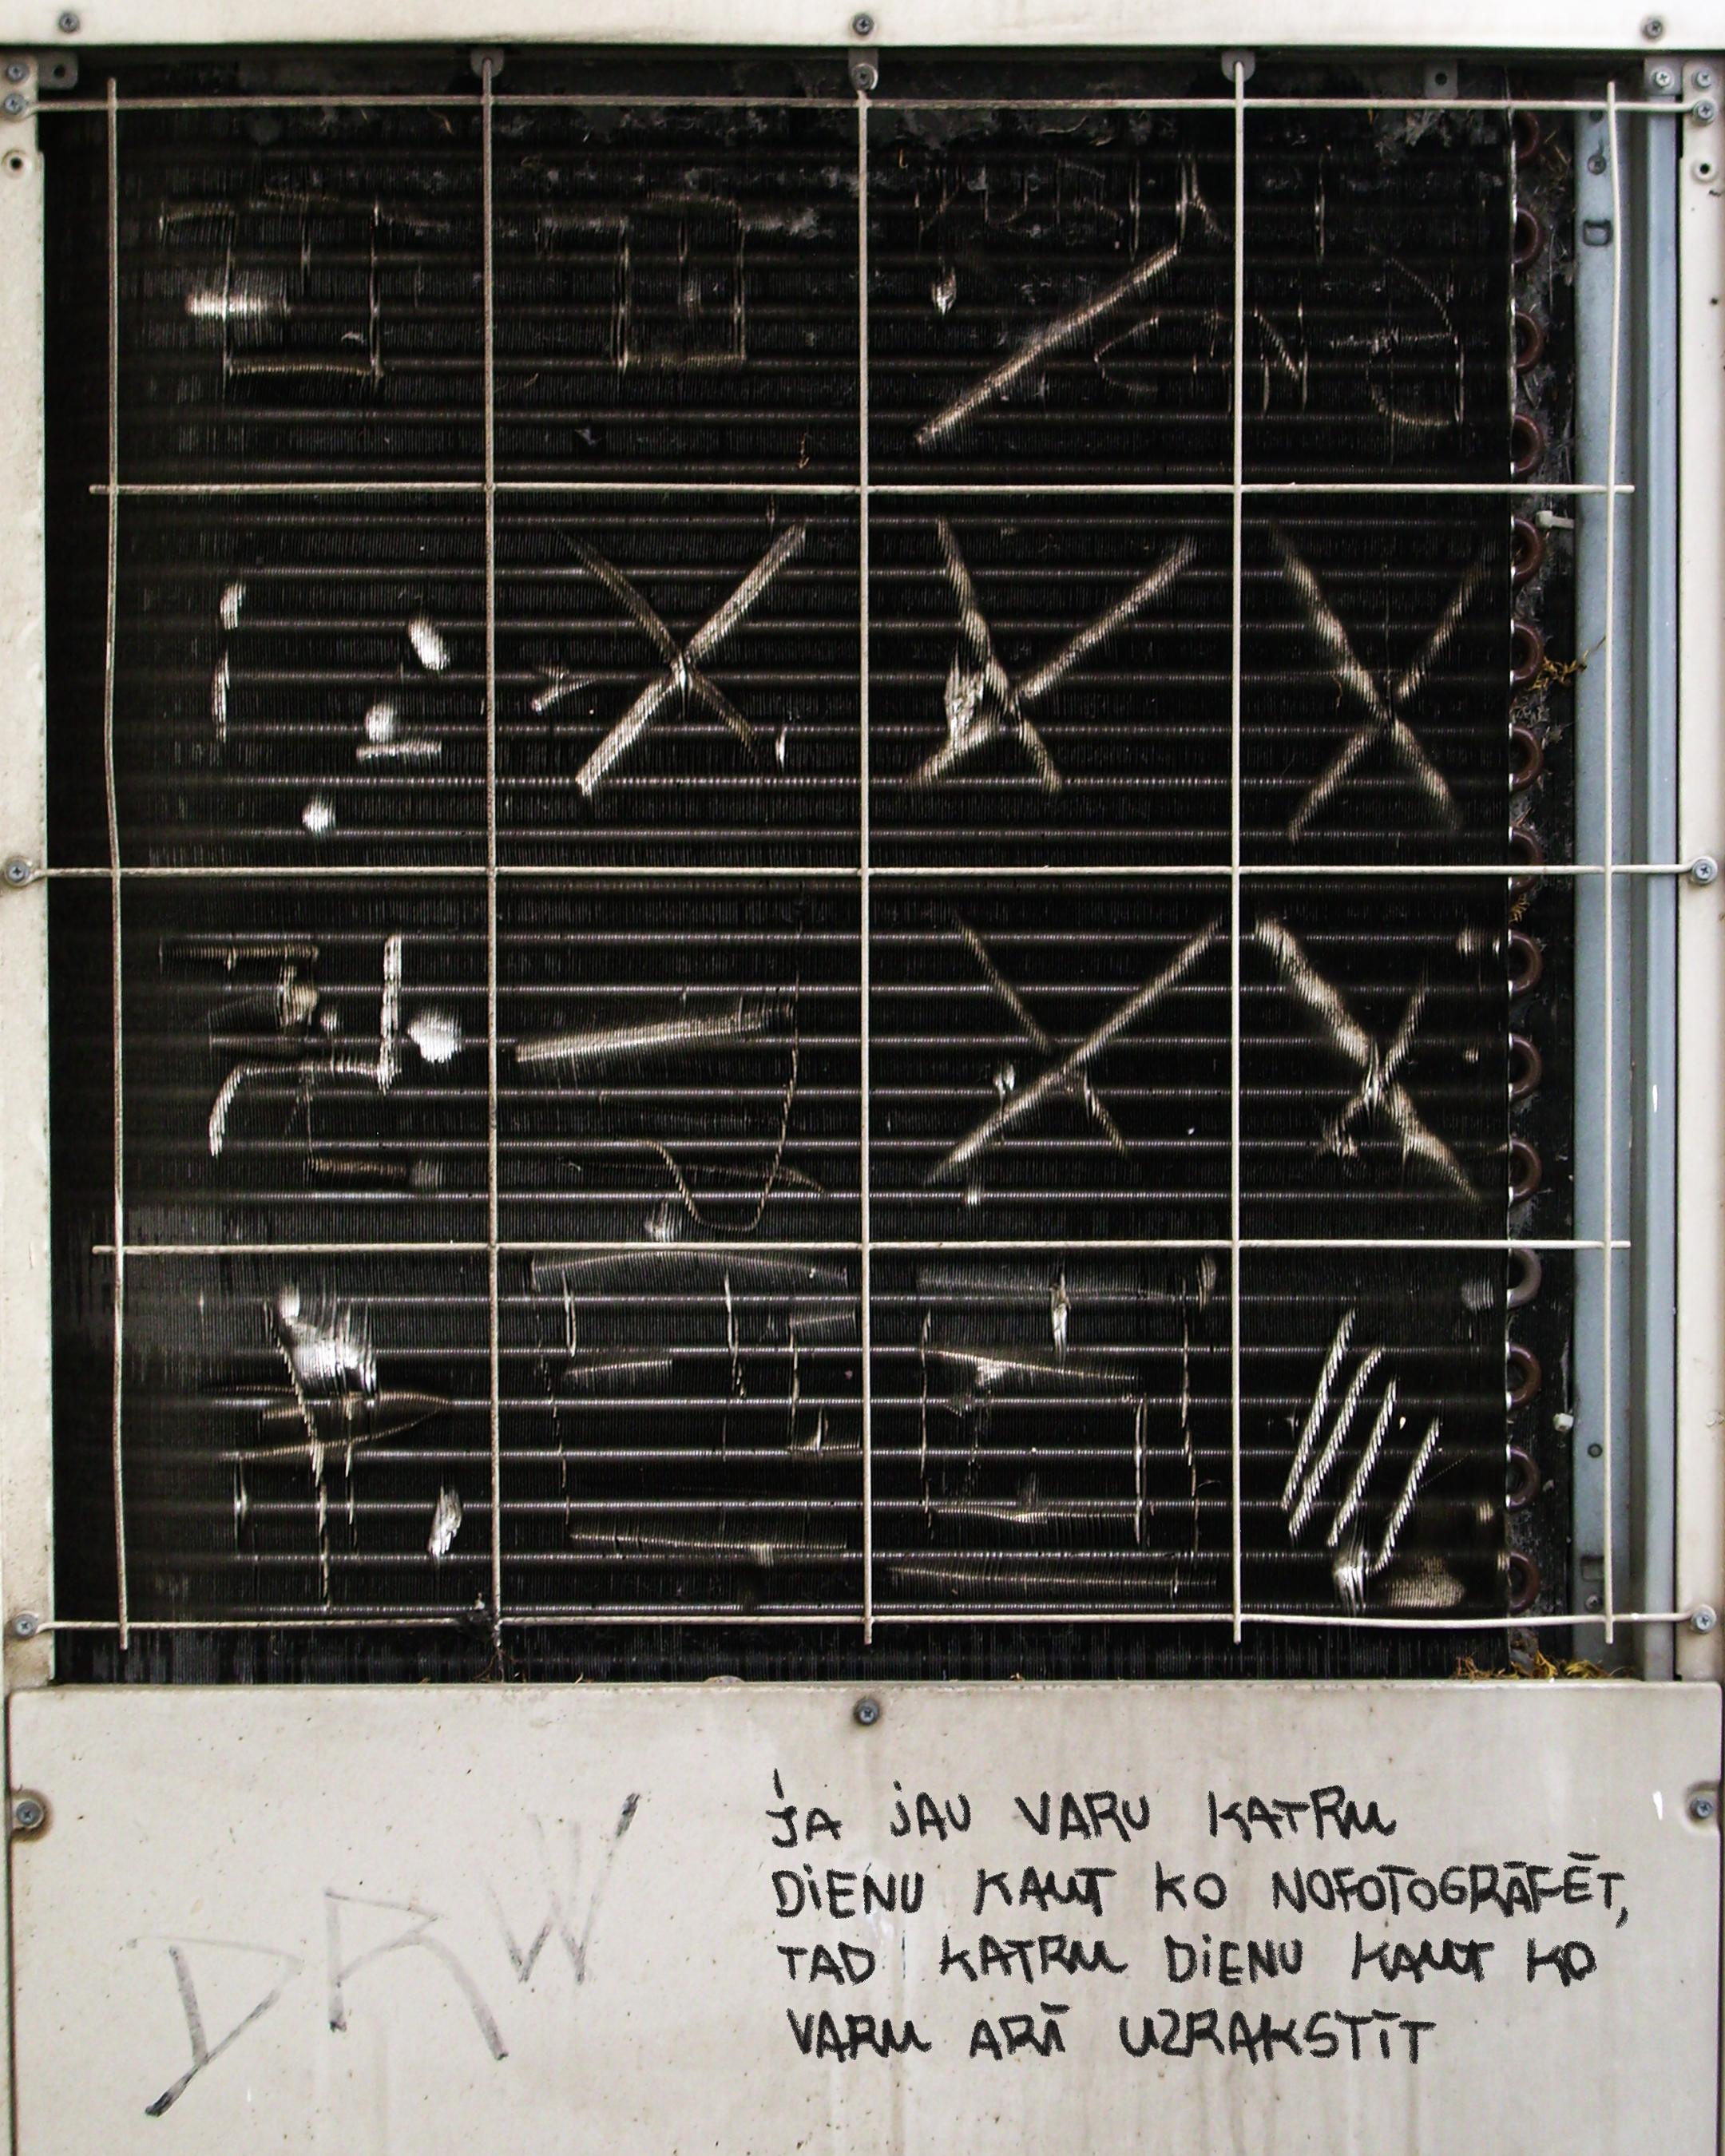 DRW
JA JAU VARU KATRU
DIENU KAUT KO NOFOTOGRĀFĒT,
TAD KATRU DIENU KAUT KO
VARU ARĪ UZRAKSTĪT